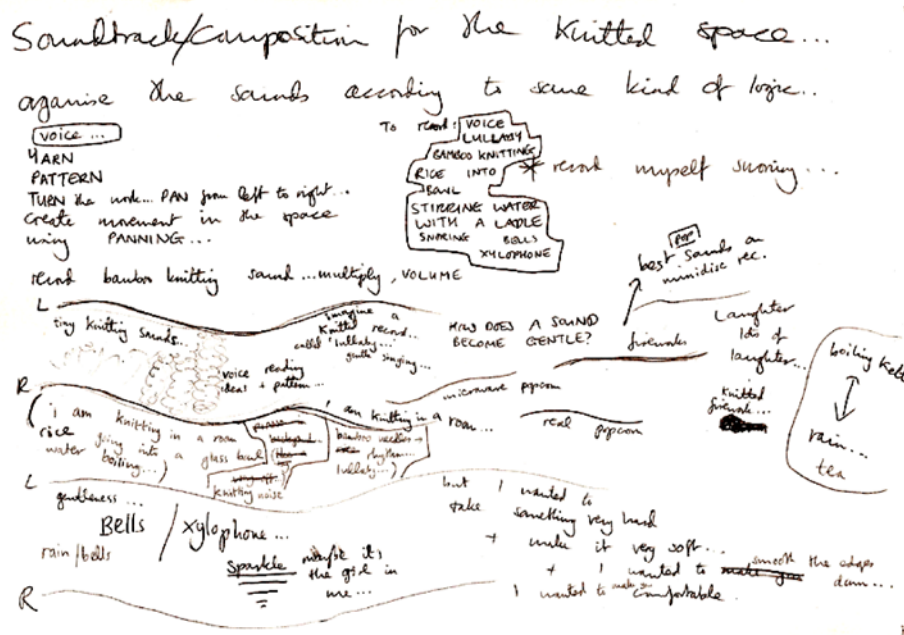 Soundtrack/Composition for the knitted space...
organise the sounds according to some kind of logic..
voice ...
YARN
PATTERN
TURN the work... PAN from left to right...
create movement in the space
using PANNING...
To record: VOICE
LULLABY
BAMBOO KNITTING
RICE INTO
BOWL
STIRRING WATER
WITH A LADLE
SNORING BELLS
XYLOPHONE
* record myself snoring...
record bamboo knitting sound... multiply, VOLUME
POP
best sounds on
minidisc rec.
L
tiny knitting sounds...
imagine a
knitted record...
called 'lullaby'...
gentle singing...
voice reading
ideas + pattern...
HOW DOES A SOUND
BECOME GENTLE?
fireworks
Laughter
lots of
laughter...
knitted
firework...
boiling kettle
rain...
tea
R
microwave popcorn
real popcorn
i am knitting in a room
i am knitting in a room...
rice going into a glass bowl
water boiling...)
knitting noise
bamboo needles
rhythm...
lullaby...)
L
gentleness...
BELLS / xylophone...
rain/bells
sparkle maybe it's
the girl in
me...
but I wanted to
take something very hard
+ make it very soft...
+ I wanted to smooth the edges
down...
I wanted to make comfortable.
R